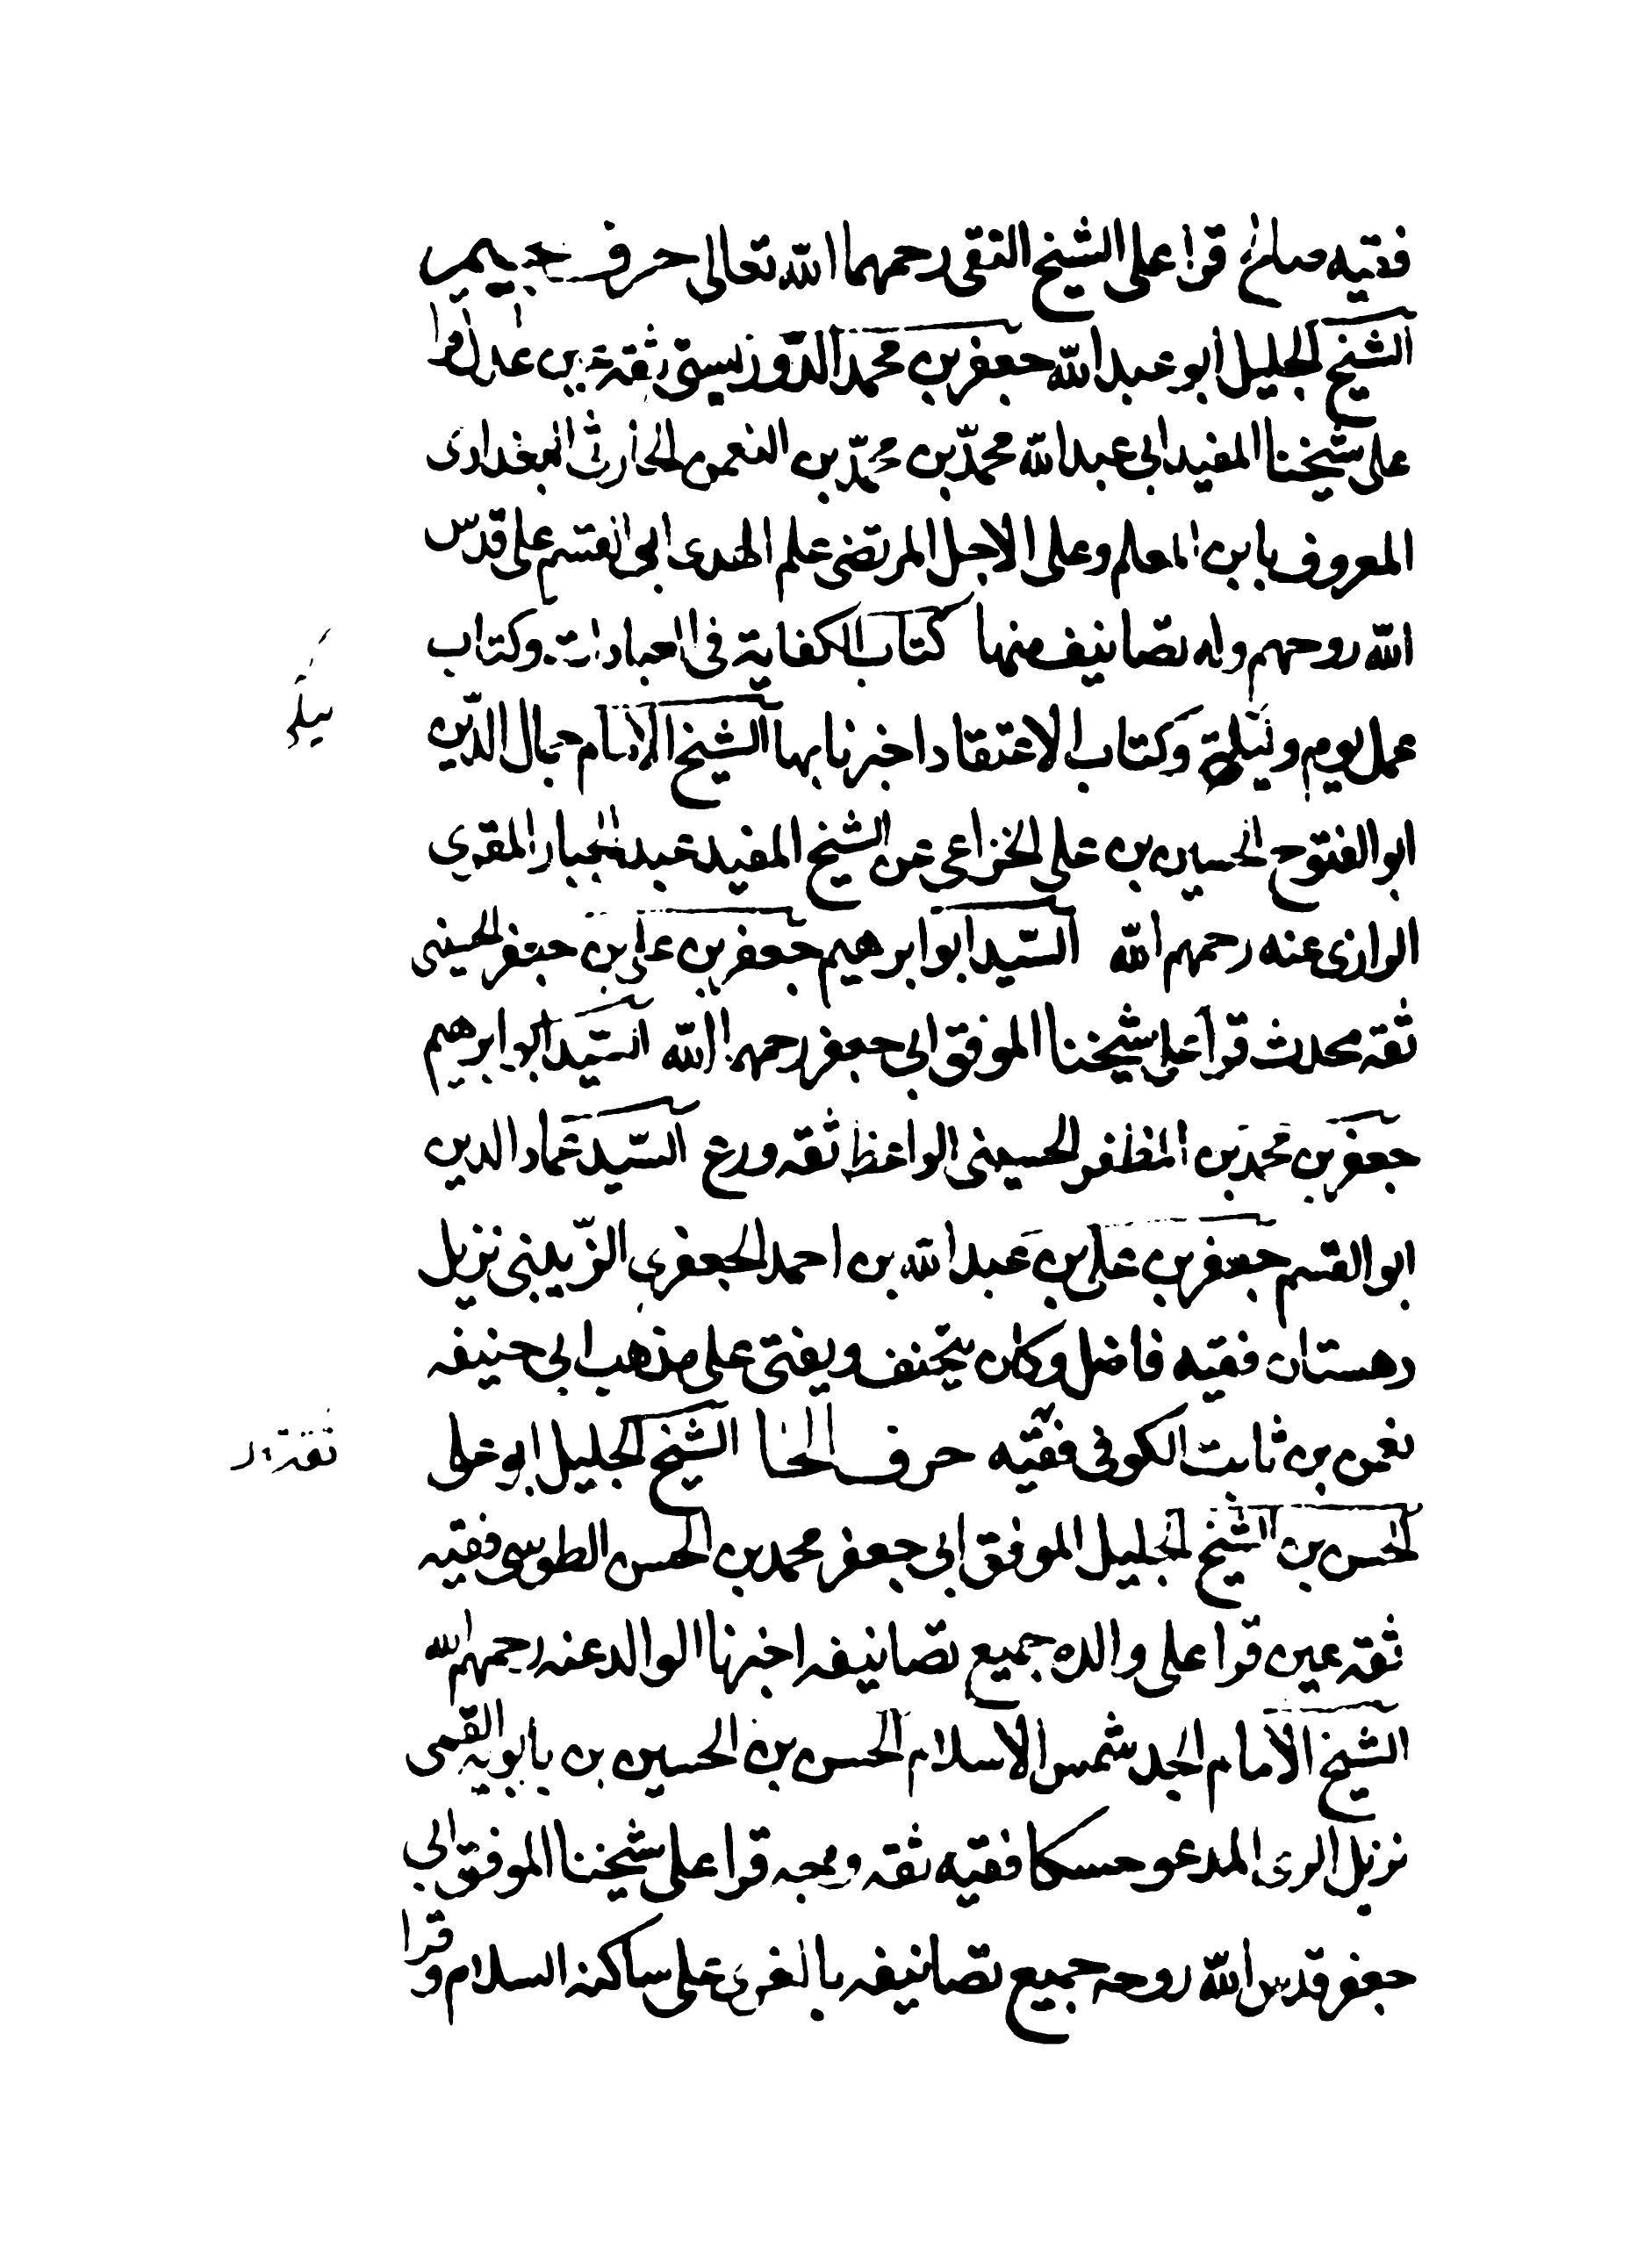 فقيه صالح قرا على الشيخ التقى رحمهما الله تعالى حرف جيم
الشيخ الجليل ابو عبد الله جعفر بن محمد الدّوريستى ثقة عين عدل قرا
على شيخنا المفيد ابى عبد الله محمّد بن محمّد بن النعمن الحارثى البغدادى
المعروف بابن المعلم وعلى الاجل المرتضى علم الهدى ابى القسم على قدس
الله روحهم وله تصانيف منها كتاب الكفاية فى العبادات وكتاب
عمل يوم وليلة وكتاب الاعتقاد اخبرنا بها الشيخ الامام جمال الدين
ابو الفتوح الحسين بن على الخزاعى عن الشيخ المفيد عبد الجبار المقرى
الرازى عنه رحمهم الله السّيد ابو ابرهيم جعفر بن على بن جعفر الحسينى
ثقه محدث قرا على شيخنا الموفق ابى جعفر رحمهما الله السّيد ابو ابرهيم
جعفر بن محمد بن المظفر الحسينى الواعظ ثقه ورع السّيد عماد الدين
ابو القسم جعفر بن على بن عبد الله بن احمد الجعفرى الزّينبى نزيل
دهستان فقيه فاضل وكان يتحنف ويفتى على مذهب ابى حنيفه
نعمن بن ثابت الكوفى فقيه حرف الحا الشيخ الجليل ابو على
الحسن بن الشيخ الجليل الموفق ابى جعفر محمد بن الحسن الطوسى فقيه
ثقه عين قرا على والده جميع تصانيفه اخبرنا الوالد عنه رحمهم الله
الشيخ الامام الجد شمس الاسلام الحسن بن الحسين بن بابويه القمى
نزيل الرى المدعو حسكا فقيه ثقه وجه قرا على شيخنا الموفق ابى
جعفر قدس الله روحه جميع تصانيفه بالغرى على ساكنه السلام وقرا